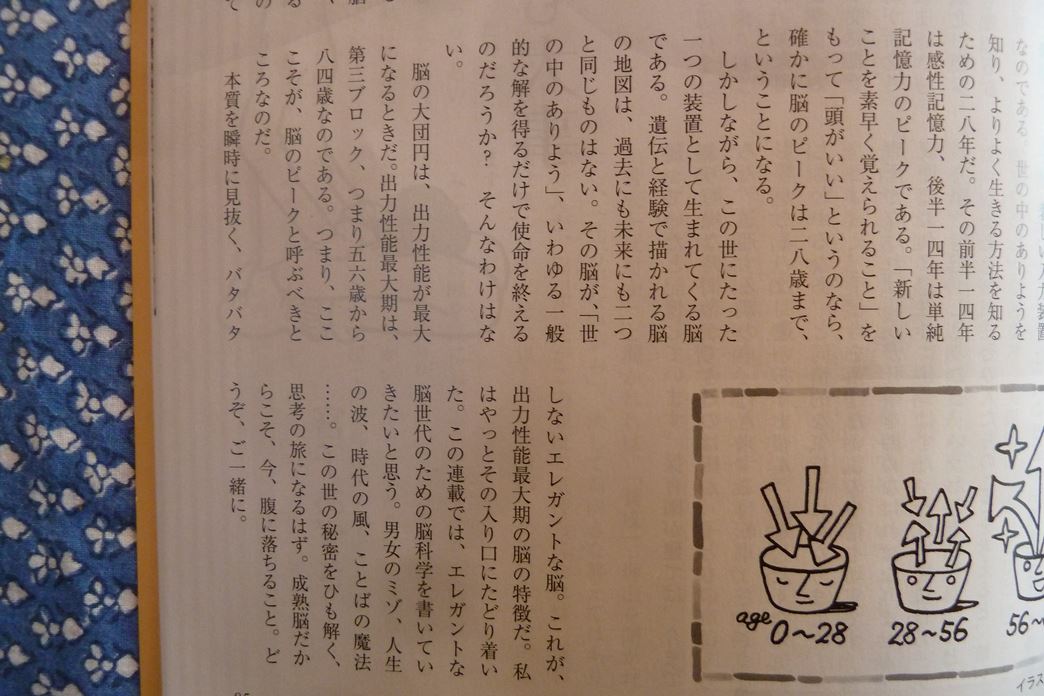 なのである。世の中のありようを
知り、よりよく生きる方法を知る
ための二八年だ。その前半一四年
は感性記憶力、後半一四年は単純
記憶力のピークである。「新しい
ことを素早く覚えられること」を
もって「頭がいい」というのなら、
確かに脳のピークは二八歳まで、
ということになる。
しかしながら、この世にたった
一つの装置として生まれてくる脳
である。遺伝と経験で描かれる脳
の地図は、過去にも未来にも二つ
と同じものはない。その脳が、「世
の中のありよう」、いわゆる一般
的な解を得るだけで使命を終える
のだろうか? そんなわけはな
い。
脳の大団円は、出力性能が最大
になるときだ。出力性能最大期は、
第三ブロック、つまり五六歳から
八四歳なのである。つまり、ここ
こそが、脳のピークと呼ぶべきと
ころなのだ。
本質を瞬時に見抜く、バタバタ
しないエレガントな脳。これが、
出力性能最大期の脳の特徴だ。私
はやっとその入り口にたどり着い
た。この連載では、エレガントな
脳世代のための脳科学を書いてい
きたいと思う。男女のミゾ、人生
の波、時代の風、ことばの魔法
……。この世の秘密をひも解く、
思考の旅になるはず。成熟脳だか
らこそ、今、腹に落ちること。ど
うぞ、ご一緒に。
age 0〜28
28〜56
56〜
イラス